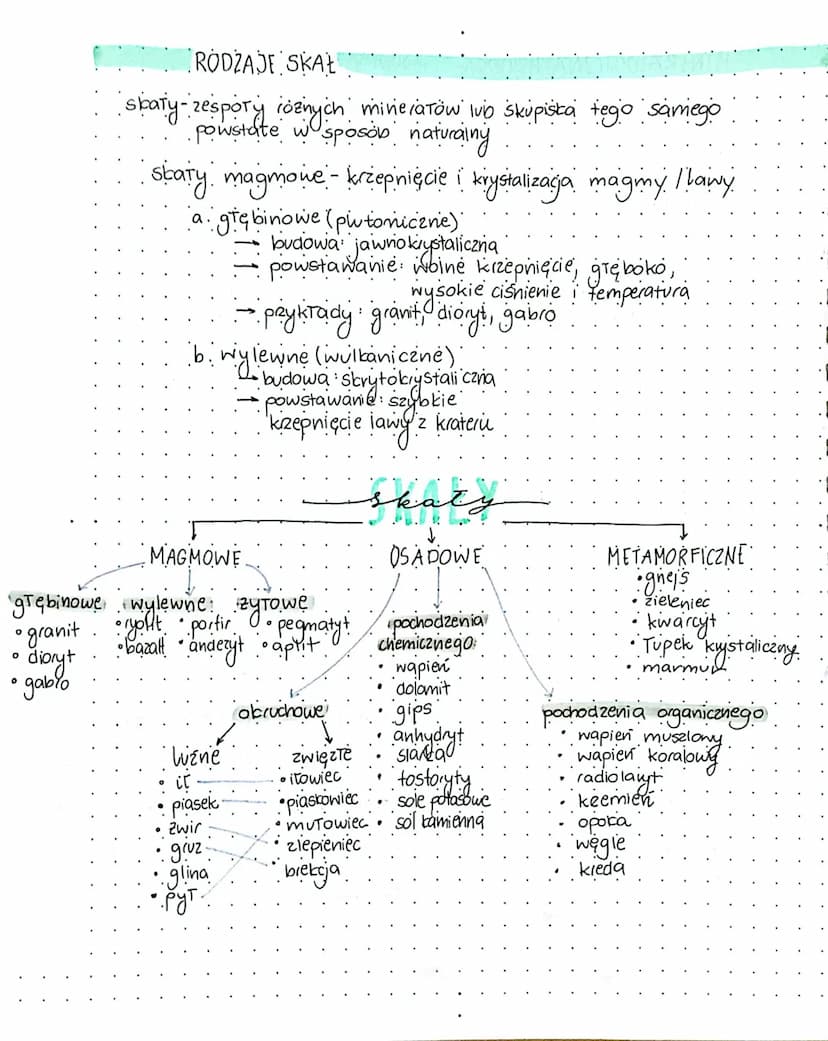 RODZAJE SKAŁ
skały - zespoły różnych minerałów lub skupiska tego samego
powstałe w sposób naturalny
skały magmowe - krzepnięcie i krystalizacja magmy / lawy
a. głębinowe (plutoniczne)
→ budowa: jawnokrystaliczna
→ powstawanie: wolne krzepnięcie, głęboko,
wysokie ciśnienie i temperatura
→ przykłady: granit, dioryt, gabro
b. wylewne (wulkaniczne)
↳ budowa: skrytokrystaliczna
→ powstawanie: szybkie
krzepnięcie lawy z krateru
SKAŁY
skały
MAGMOWE
głębinowe
• granit
• dioryt
• gabro
wylewne
• ryolit • porfir
• bazalt • andezyt
żyłowe
• pegmatyt
• aplit
OSADOWE
okruchowe
luźne
• ił
• piasek
• żwir
• gruz
• glina
• pył
zwięzłe
• iłowiec
• piaskowiec
• mułowiec
• zlepieniec
• brekcja
pochodzenia
chemicznego:
• wapień
• dolomit
• gips
• anhydryt
• siarka
• fosforyty
• sole potasowe
• sól kamienna
pochodzenia organicznego
• wapień muszlowy
• wapień koralowy
• radiolaryt
• krzemień
• opoka
• węgle
• kreda
METAMORFICZNE
• gnejs
• zieleniec
• kwarcyt
• łupek krystaliczny
• marmur